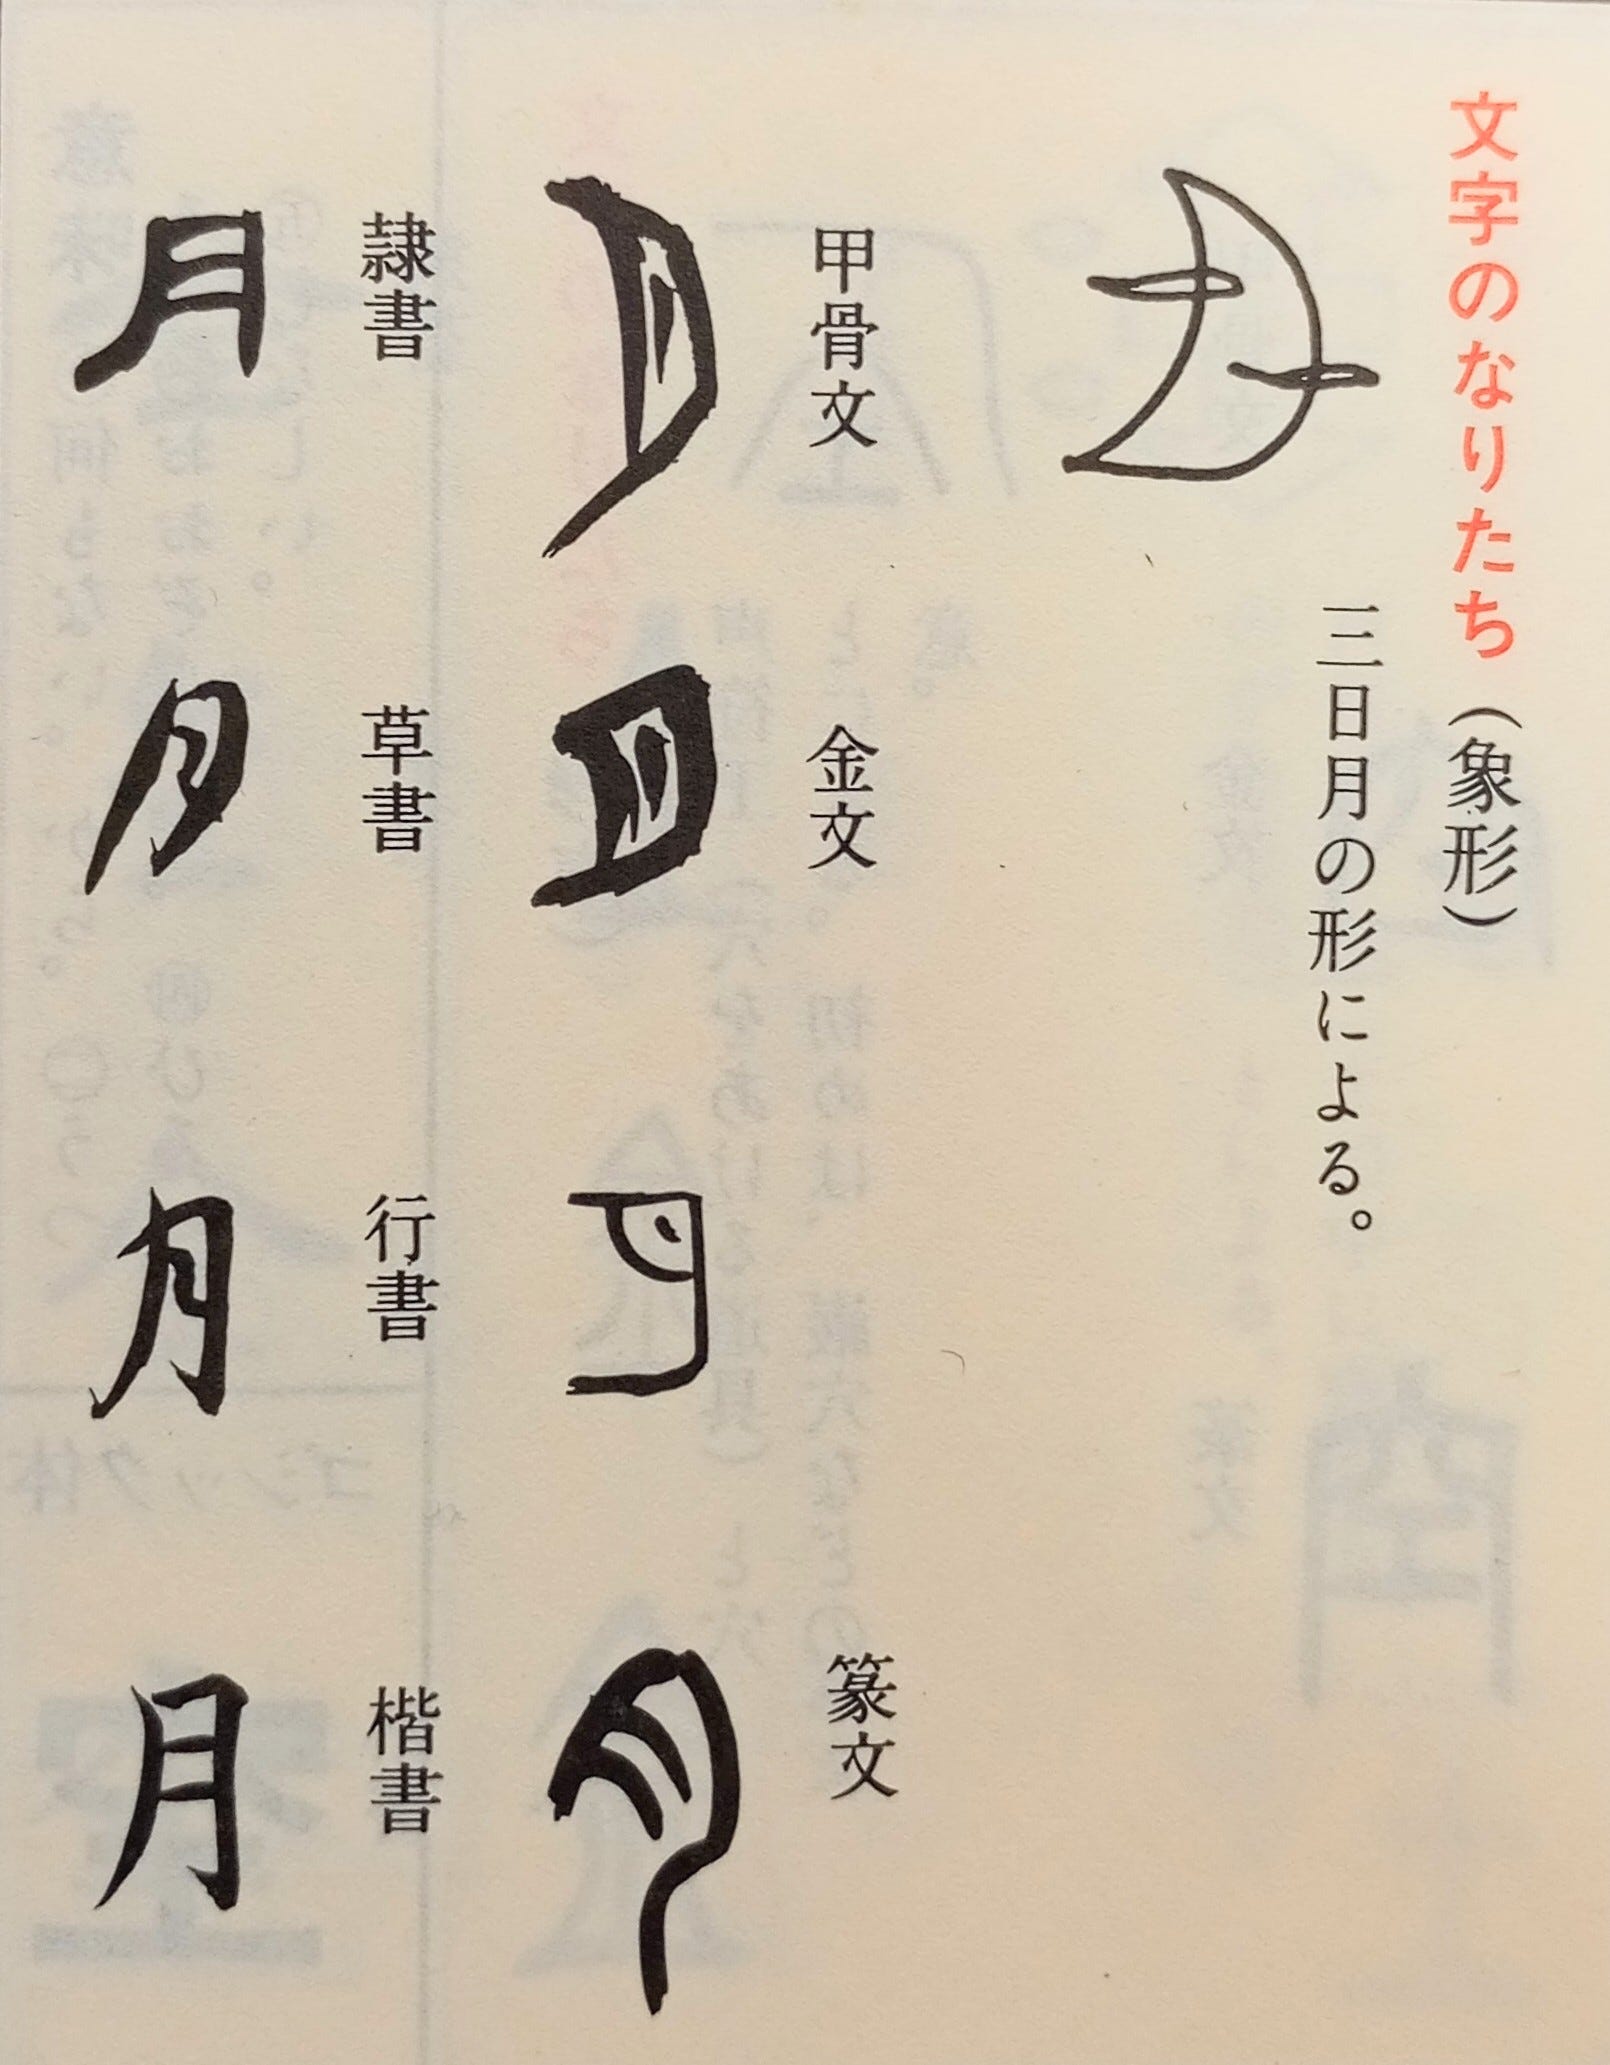 文字のなりたち（象形）
三日月の形による。
甲骨文
金文
篆文
隷書
月
草書
月
行書
月
楷書
月